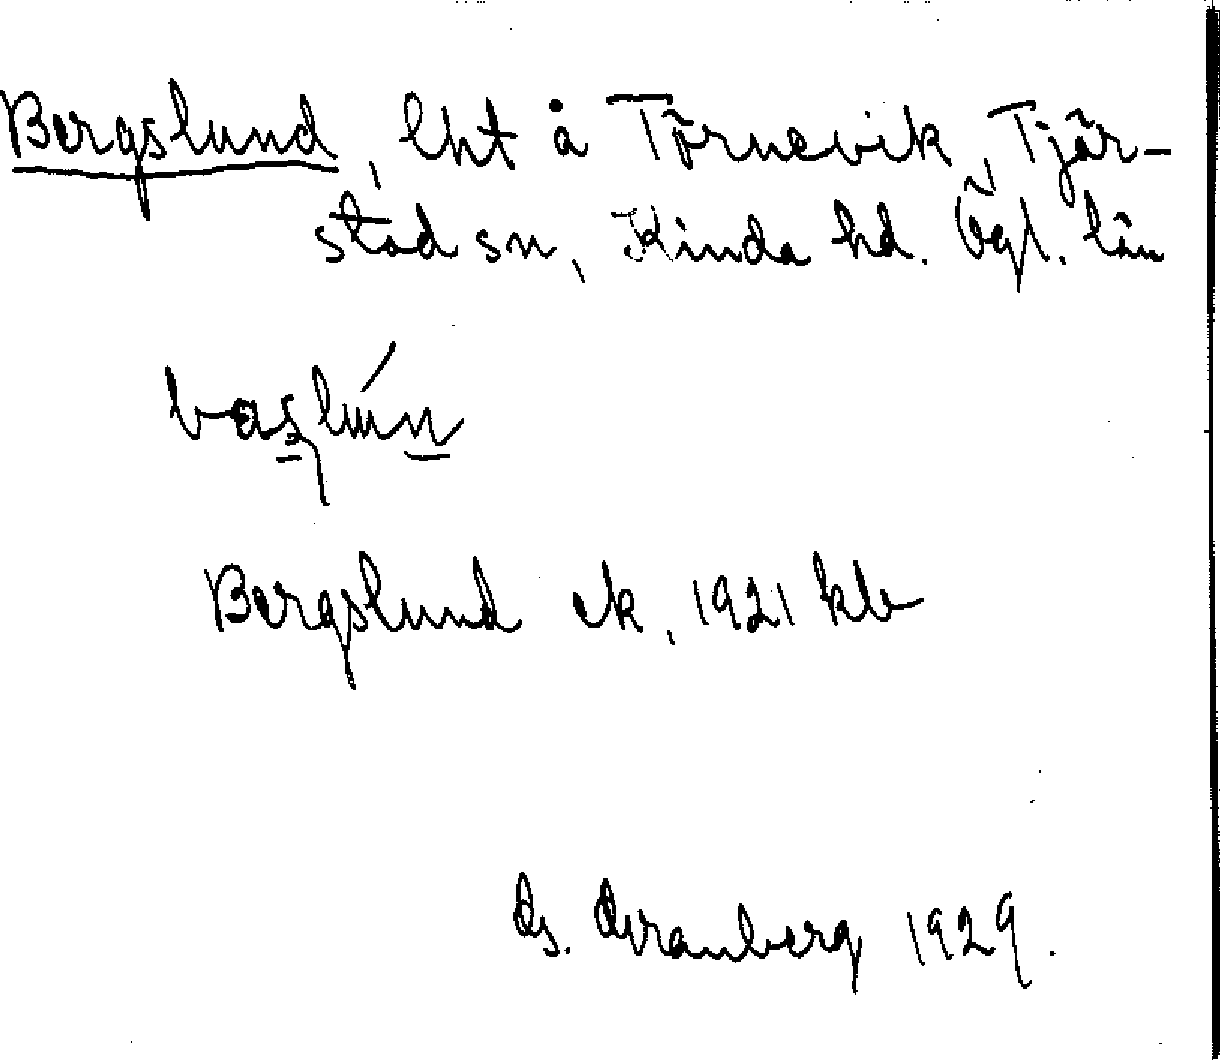 Bergslund, lht å Törnevik, Tjär-
stad sn, Kinda hd. Ögl. län
Bergslund ek, 1921 klb
G. Granberg 1929.